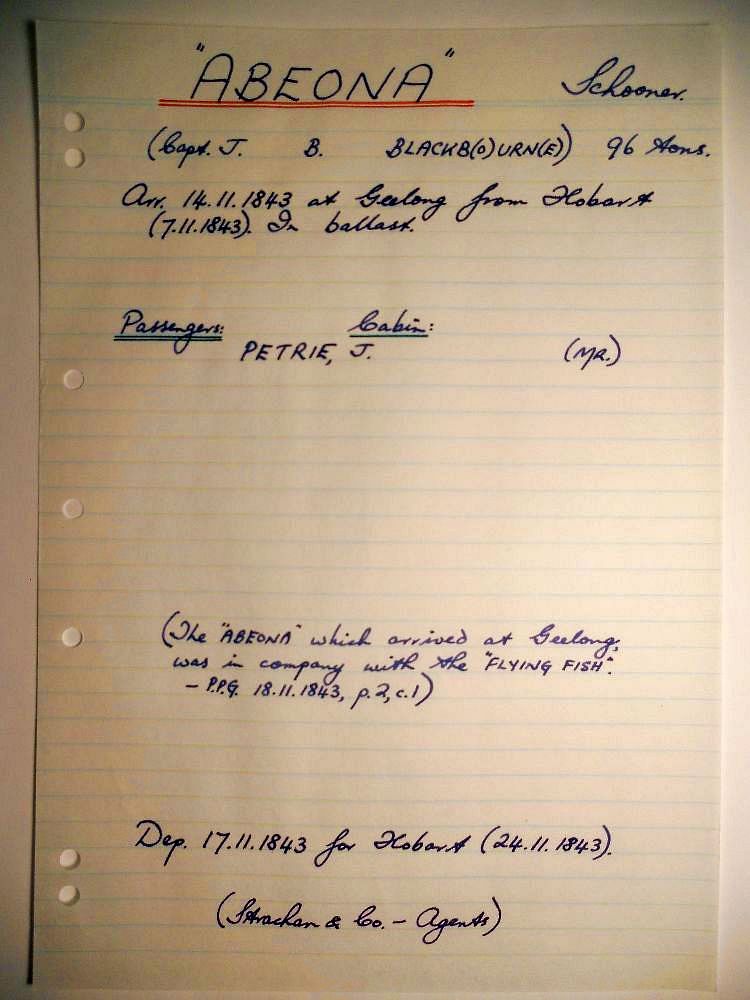 "ABEONA" Schooner.
(Capt. J. B. BLACKB(O)URN(E)) 96 tons.
Arr. 14.11.1843 at Geelong from Hobart
(7.11.1843). In ballast.
Passengers: Cabin:
PETRIE, J. (MR.)
(The "ABEONA" which arrived at Geelong,
was in company with the "FLYING FISH".
- P.P.G. 18.11.1843, p.2, c.1)
Dep. 17.11.1843 for Hobart (24.11.1843).
(Strachan & Co. - Agents)